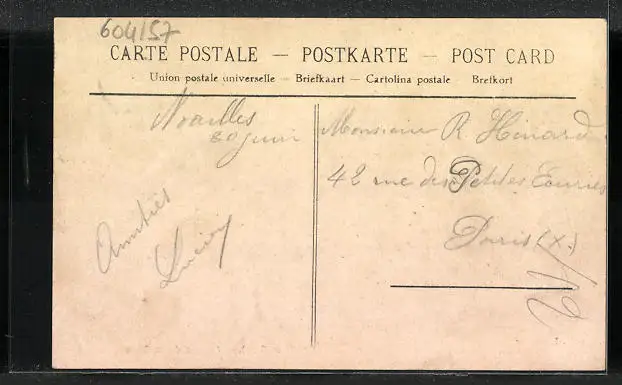 604/57
CARTE POSTALE — POSTKARTE — POST CARD
Union postale universelle — Briefkaart — Cartolina postale Brefkort
Noailles
30 juin
Amitiés
Lucien
Monsieur R Hénard
42 rue des Petites Ecuries
Paris (X.)